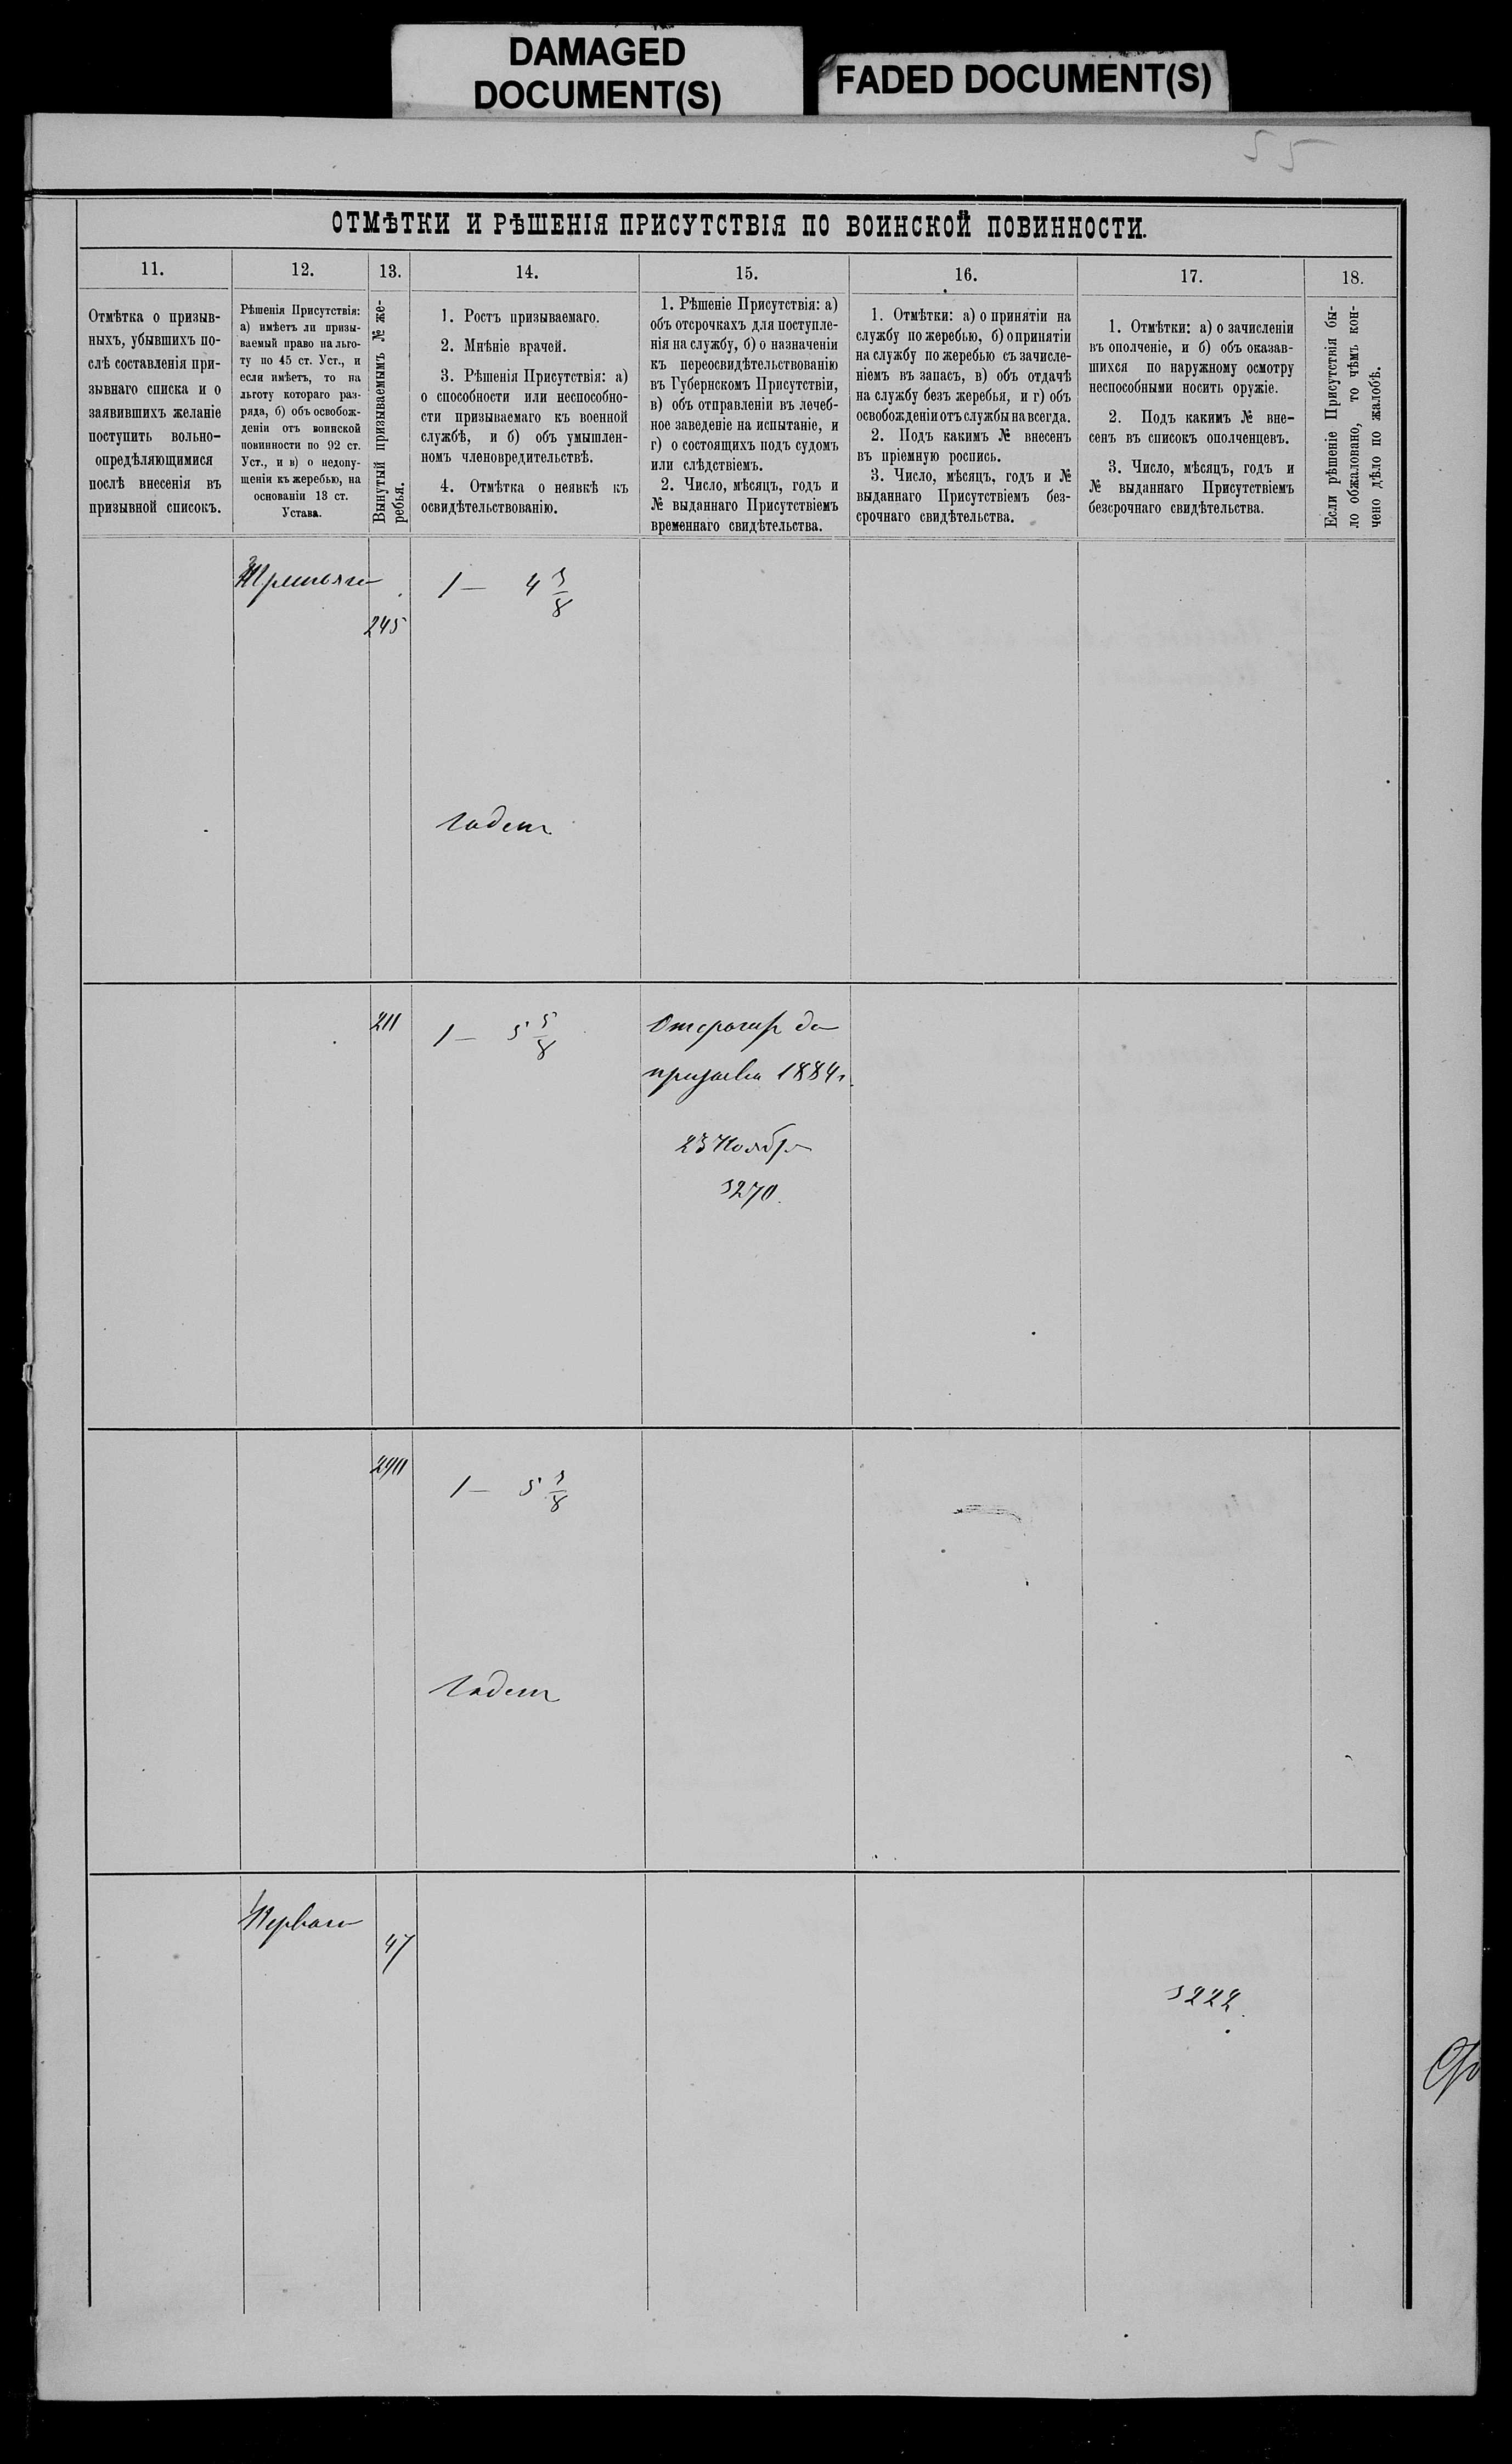 DAMAGED
DOCUMENT(S)
FADED DOCUMENT(S)
55
ОТМѢТКИ И РѢШЕНІЯ ПРИСУТСТВІЯ ПО ВОИНСКОЙ ПОВИННОСТИ.
11.
Отмѣтка о призыв-
ныхъ, убывшихъ по-
слѣ составленія при-
зывнаго списка и о
заявившихъ желаніе
поступить вольно-
опредѣляющимися
послѣ внесенія въ
призывной списокъ.
12.
Рѣшенія Присутствія:
а) имѣетъ ли призы-
ваемый право на льго-
ту по 45 ст. Уст., и
если имѣетъ, то на
льготу котораго раз-
ряда, б) объ освобож-
деніи отъ воинской
повинности по 92 ст.
Уст., и в) о недопу-
щеніи къ жеребью, на
основаніи 13 ст.
Устава.
13.
Вынутый призываемымъ № же-
ребья.
14.
1. Ростъ призываемаго.
2. Мнѣніе врачей.
3. Рѣшенія Присутствія: а)
о способности или неспособно-
сти призываемаго къ военной
службѣ, и б) объ умышлен-
номъ членовредительствѣ.
4. Отмѣтка о неявкѣ къ
освидѣтельствованію.
15.
1. Рѣшеніе Присутствія: а)
объ отсрочкахъ для поступле-
нія на службу, б) о назначеніи
къ переосвидѣтельствованію
въ Губернскомъ Присутствіи,
в) объ отправленіи въ лечеб-
ное заведеніе на испытаніе, и
г) о состоящихъ подъ судомъ
или слѣдствіемъ.
2. Число, мѣсяцъ, годъ и
№ выданнаго Присутствіемъ
временнаго свидѣтельства.
16.
1. Отмѣтки: а) о принятіи на
службу по жеребью, б) о принятіи
на службу по жеребью съ зачисле-
ніемъ въ запасъ, в) объ отдачѣ
на службу безъ жеребья, и г) объ
освобожденіи отъ службы на всегда.
2. Подъ какимъ № внесенъ
въ пріемную роспись.
3. Число, мѣсяцъ, годъ и №
выданнаго Присутствіемъ без-
срочнаго свидѣтельства.
17.
1. Отмѣтки: а) о зачисленіи
въ ополченіе, и б) объ оказав-
шихся по наружному осмотру
неспособными носить оружіе.
2. Подъ какимъ № вне-
сенъ въ списокъ ополченцевъ.
3. Число, мѣсяцъ, годъ и
№ выданнаго Присутствіемъ
безсрочнаго свидѣтельства.
18.
Если рѣшеніе Присутствія бы-
ло обжаловано, то чѣмъ кон-
чено дѣло по жалобѣ.
Третьяго
245
1 — 4 3/8
Годенъ
211
1 — 5 5/8
Отсрочка до
призыва 1884 г.
23 Ноября
3270.
1 — 5 3/8
Годенъ
Перваго
47
3222.